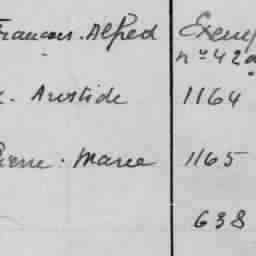 François. Alfred Exemp
nº 42
Aristide 1164
Pierre. Marie 1165
638